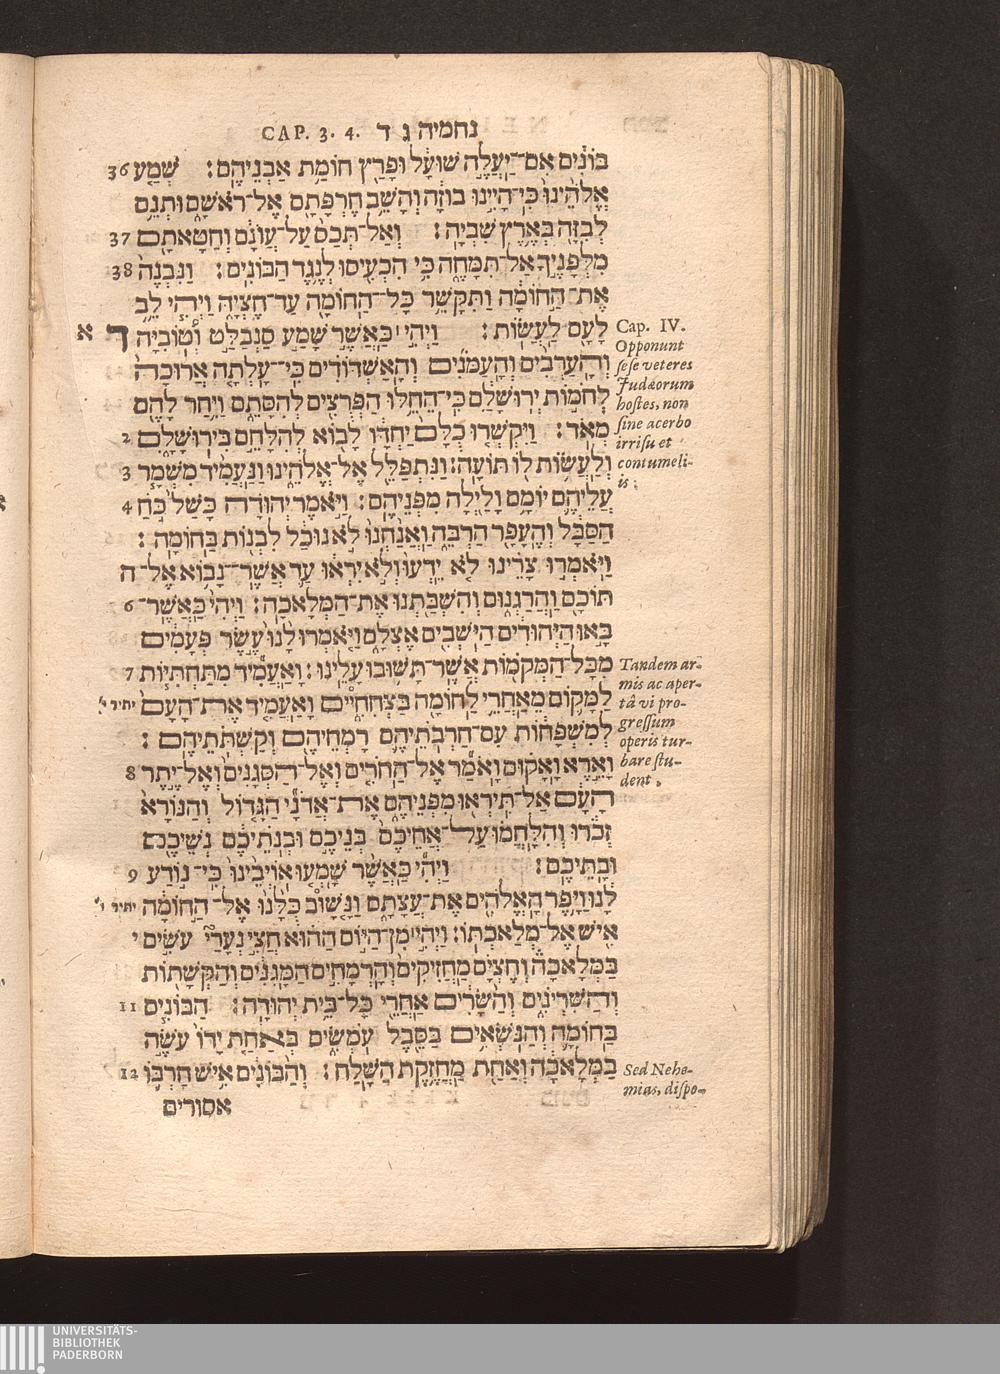 CAP. 3. 4. נחמיה ג ד
בּוֹנִים אִם־יַעֲלֶה שׁוּעָל וּפָרַץ חוֹמַת אַבְנֵיהֶם׃ שְׁמַע 36
אֱלֹהֵינוּ כִּי־הָיִינוּ בוּזָה וְהָשֵׁב חֶרְפָּתָם אֶל־רֹאשָׁם וּתְנֵם
לְבִזָּה בְּאֶרֶץ שִׁבְיָה׃ וְאַל־תְּכַס עַל־עֲוֹנָם וְחַטָּאתָם 37
מִלְּפָנֶיךָ אַל־תִּמָּחֶה כִּי הִכְעִיסוּ לְנֶגֶד הַבּוֹנִים׃ וַנִּבְנֶה 38
אֶת־הַחוֹמָה וַתִּקָּשֵׁר כָּל־הַחוֹמָה עַד־חֶצְיָהּ וַיְהִי לֵב
לָעָם לַעֲשׂוֹת׃ וַיְהִי כַאֲשֶׁר שָׁמַע סַנְבַלַּט וְטוֹבִיָּה ד א
וְהָעַרְבִים וְהָעַמֹּנִים וְהָאַשְׁדּוֹדִים כִּי־עָלְתָה אֲרוּכָה
לְחֹמוֹת יְרוּשָׁלַם כִּי־הֵחֵלּוּ הַפְּרֻצִים לְהִסָּתֵם וַיִּחַר לָהֶם
מְאֹד׃ וַיִּקְשְׁרוּ כֻלָּם יַחְדָּו לָבוֹא לְהִלָּחֵם בִּירוּשָׁלָם 2
וְלַעֲשׂוֹת לוֹ תּוֹעָה׃ וַנִּתְפַּלֵּל אֶל־אֱלֹהֵינוּ וַנַּעֲמִיד מִשְׁמָר 3
עֲלֵיהֶם יוֹמָם וָלַיְלָה מִפְּנֵיהֶם׃ וַיֹּאמֶר יְהוּדָה כָּשַׁל כֹּחַ 4
הַסַּבָּל וְהֶעָפָר הַרְבֵּה וַאֲנַחְנוּ לֹא נוּכַל לִבְנוֹת בַּחוֹמָה׃
וַיֹּאמְרוּ צָרֵינוּ לֹא יֵדְעוּ וְלֹא יִרְאוּ עַד אֲשֶׁר־נָבוֹא אֶל־ה
תּוֹכָם וַהֲרַגְנוּם וְהִשְׁבַּתְנוּ אֶת־הַמְּלָאכָה׃ וַיְהִי כַּאֲשֶׁר־ 6
בָּאוּ הַיְּהוּדִים הַיֹּשְׁבִים אֶצְלָם וַיֹּאמְרוּ לָנוּ עֶשֶׂר פְּעָמִים
מִכָּל־הַמְּקֹמוֹת אֲשֶׁר־תָּשׁוּבוּ עָלֵינוּ׃ וָאַעֲמִיד מִתַּחְתִּיּוֹת 7
לַמָּקוֹם מֵאַחֲרֵי לַחוֹמָה בַּצְּחִחִיִּים וָאַעֲמִיד אֶת־הָעָם יתיר י׳
לְמִשְׁפָּחוֹת עִם־חַרְבֹתֵיהֶם רָמְחֵיהֶם וְקַשְּׁתֹתֵיהֶם׃
וָאֵרֶא וָאָקוּם וָאֹמַר אֶל־הַחֹרִים וְאֶל־הַסְּגָנִים וְאֶל־יֶתֶר 8
הָעָם אַל־תִּירְאוּ מִפְּנֵיהֶם אֶת־אֲדֹנָי הַגָּדוֹל וְהַנּוֹרָא
זְכֹרוּ וְהִלָּחֲמוּ עַל־אֲחֵיכֶם בְּנֵיכֶם וּבְנֹתֵיכֶם נְשֵׁיכֶם
וּבָתֵּיכֶם׃ וַיְהִי כַּאֲשֶׁר שָׁמְעוּ אוֹיְבֵינוּ כִּי־נוֹדַע 9
לָנוּ וַיָּפֶר הָאֱלֹהִים אֶת־עֲצָתָם וַנָּשׁוּב כֻּלָּנוּ אֶל־הַחוֹמָה יתיר ו׳
אִישׁ אֶל־מְלַאכְתּוֹ׃ וַיְהִי מִן־הַיּוֹם הַהוּא חֲצִי נְעָרַי עֹשִׂים י
בַּמְּלָאכָה וְחֶצְיָם מַחֲזִיקִים וְהָרְמָחִים הַמָּגִנִּים וְהַקְּשָׁתוֹת
וְהַשִּׁרְיֹנִים וְהַשָּׂרִים אַחֲרֵי כָּל־בֵּית יְהוּדָה׃ הַבּוֹנִים 11
בַּחוֹמָה וְהַנֹּשְׂאִים בַּסֶּבֶל עֹמְשִׂים בְּאַחַת יָדוֹ עֹשֶׂה
בַמְּלָאכָה וְאַחַת מַחֲזֶקֶת הַשָּׁלַח׃ וְהַבּוֹנִים אִישׁ חַרְבּוֹ 12
אסורים
Cap. IV.
Opponunt
sese veteres
Judæorum
hostes, non
sine acerbo
irrisu et
contumeli-
is;
Tandem ar-
mis ac aper-
tâ vi pro-
gressum
operis tur-
bare stu-
dent.
Sed Nehe-
mias, dispo-
UNIVERSITÄTS-
BIBLIOTHEK
PADERBORN